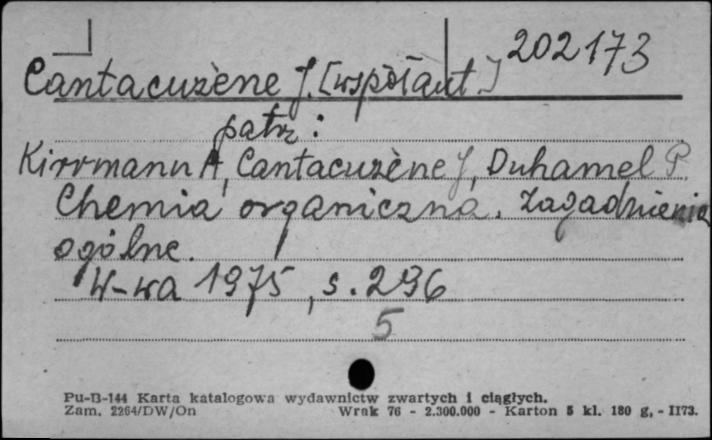 Cantacuzène J. [współaut.] 202173
patrz:
Kirrmann A, Cantacuzène J, Duhamel P.
Chemia organiczna. Zagadnienia
ogólne.
W-wa 1975, s. 296
5
Pu-B-144 Karta katalogowa wydawnictw zwartych i ciągłych.
Zam. 2264/DW/On Wrak 76 - 2.300.000 - Karton 5 kl. 180 g, - II73.